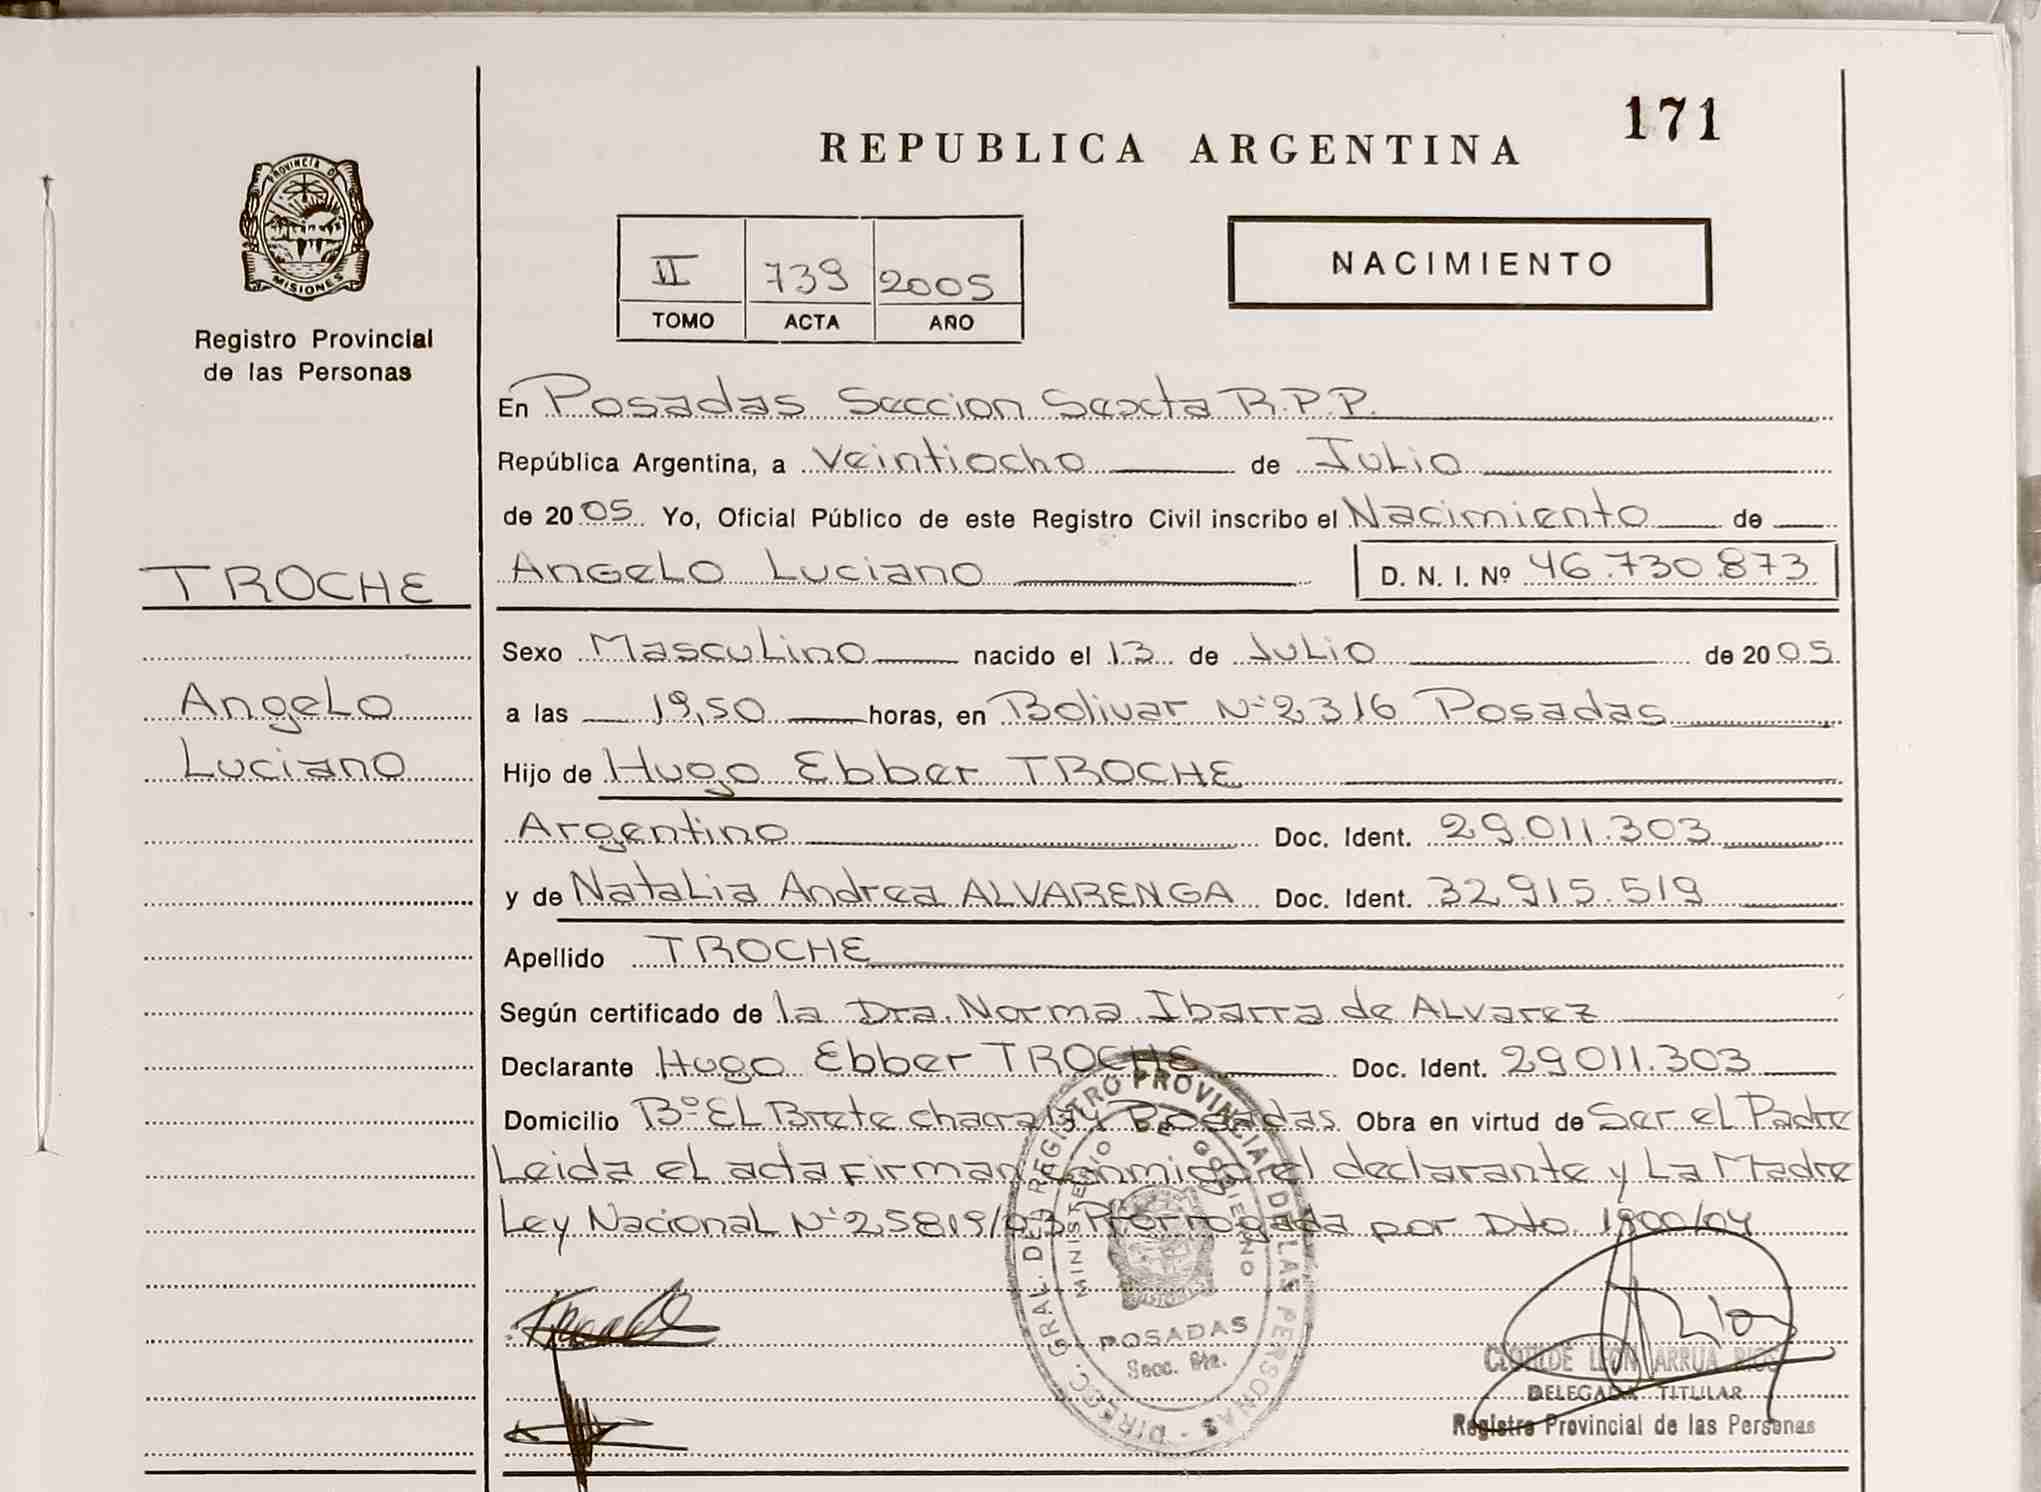 171
REPUBLICA ARGENTINA
PROVINCIA DE
MISIONES
Registro Provincial
de las Personas
NACIMIENTO
II 739 2005
TOMO ACTA AÑO
En Posadas Seccion Sexta R.P.P.
República Argentina, a Veintiocho de Julio
de 2005 Yo, Oficial Público de este Registro Civil inscribo el Nacimiento de
TROCHE
Angelo Luciano D. N. I. Nº 46.730.873
Sexo Masculino nacido el 13 de Julio de 2005
Angelo
a las 19,50 horas, en Bolivar Nº 2316 Posadas
Luciano
Hijo de Hugo Ebber TROCHE
Argentino Doc. Ident. 29.011.303
y de Natalia Andrea ALVARENGA Doc. Ident. 32.915.519
Apellido TROCHE
Según certificado de la Dra. Norma Ibarra de Alvarez
Declarante Hugo Ebber TROCHE Doc. Ident. 29.011.303
Domicilio Bº El Brete chacra Posadas Obra en virtud de Ser el Padre
Leida el acta firman conmigo el declarante y La Madre
Ley Nacional Nº 25819/03 Prorrogada por Dto. 1900/04
DIREC. GRAL. DEL REGISTRO PROVINCIAL DE LAS PERSONAS
MINISTERIO DE GOBIERNO
MISIONES
POSADAS
Secc. 6ta.
CLOTILDE LEON ARRUA RIOS
DELEGADA TITULAR
Registro Provincial de las Personas